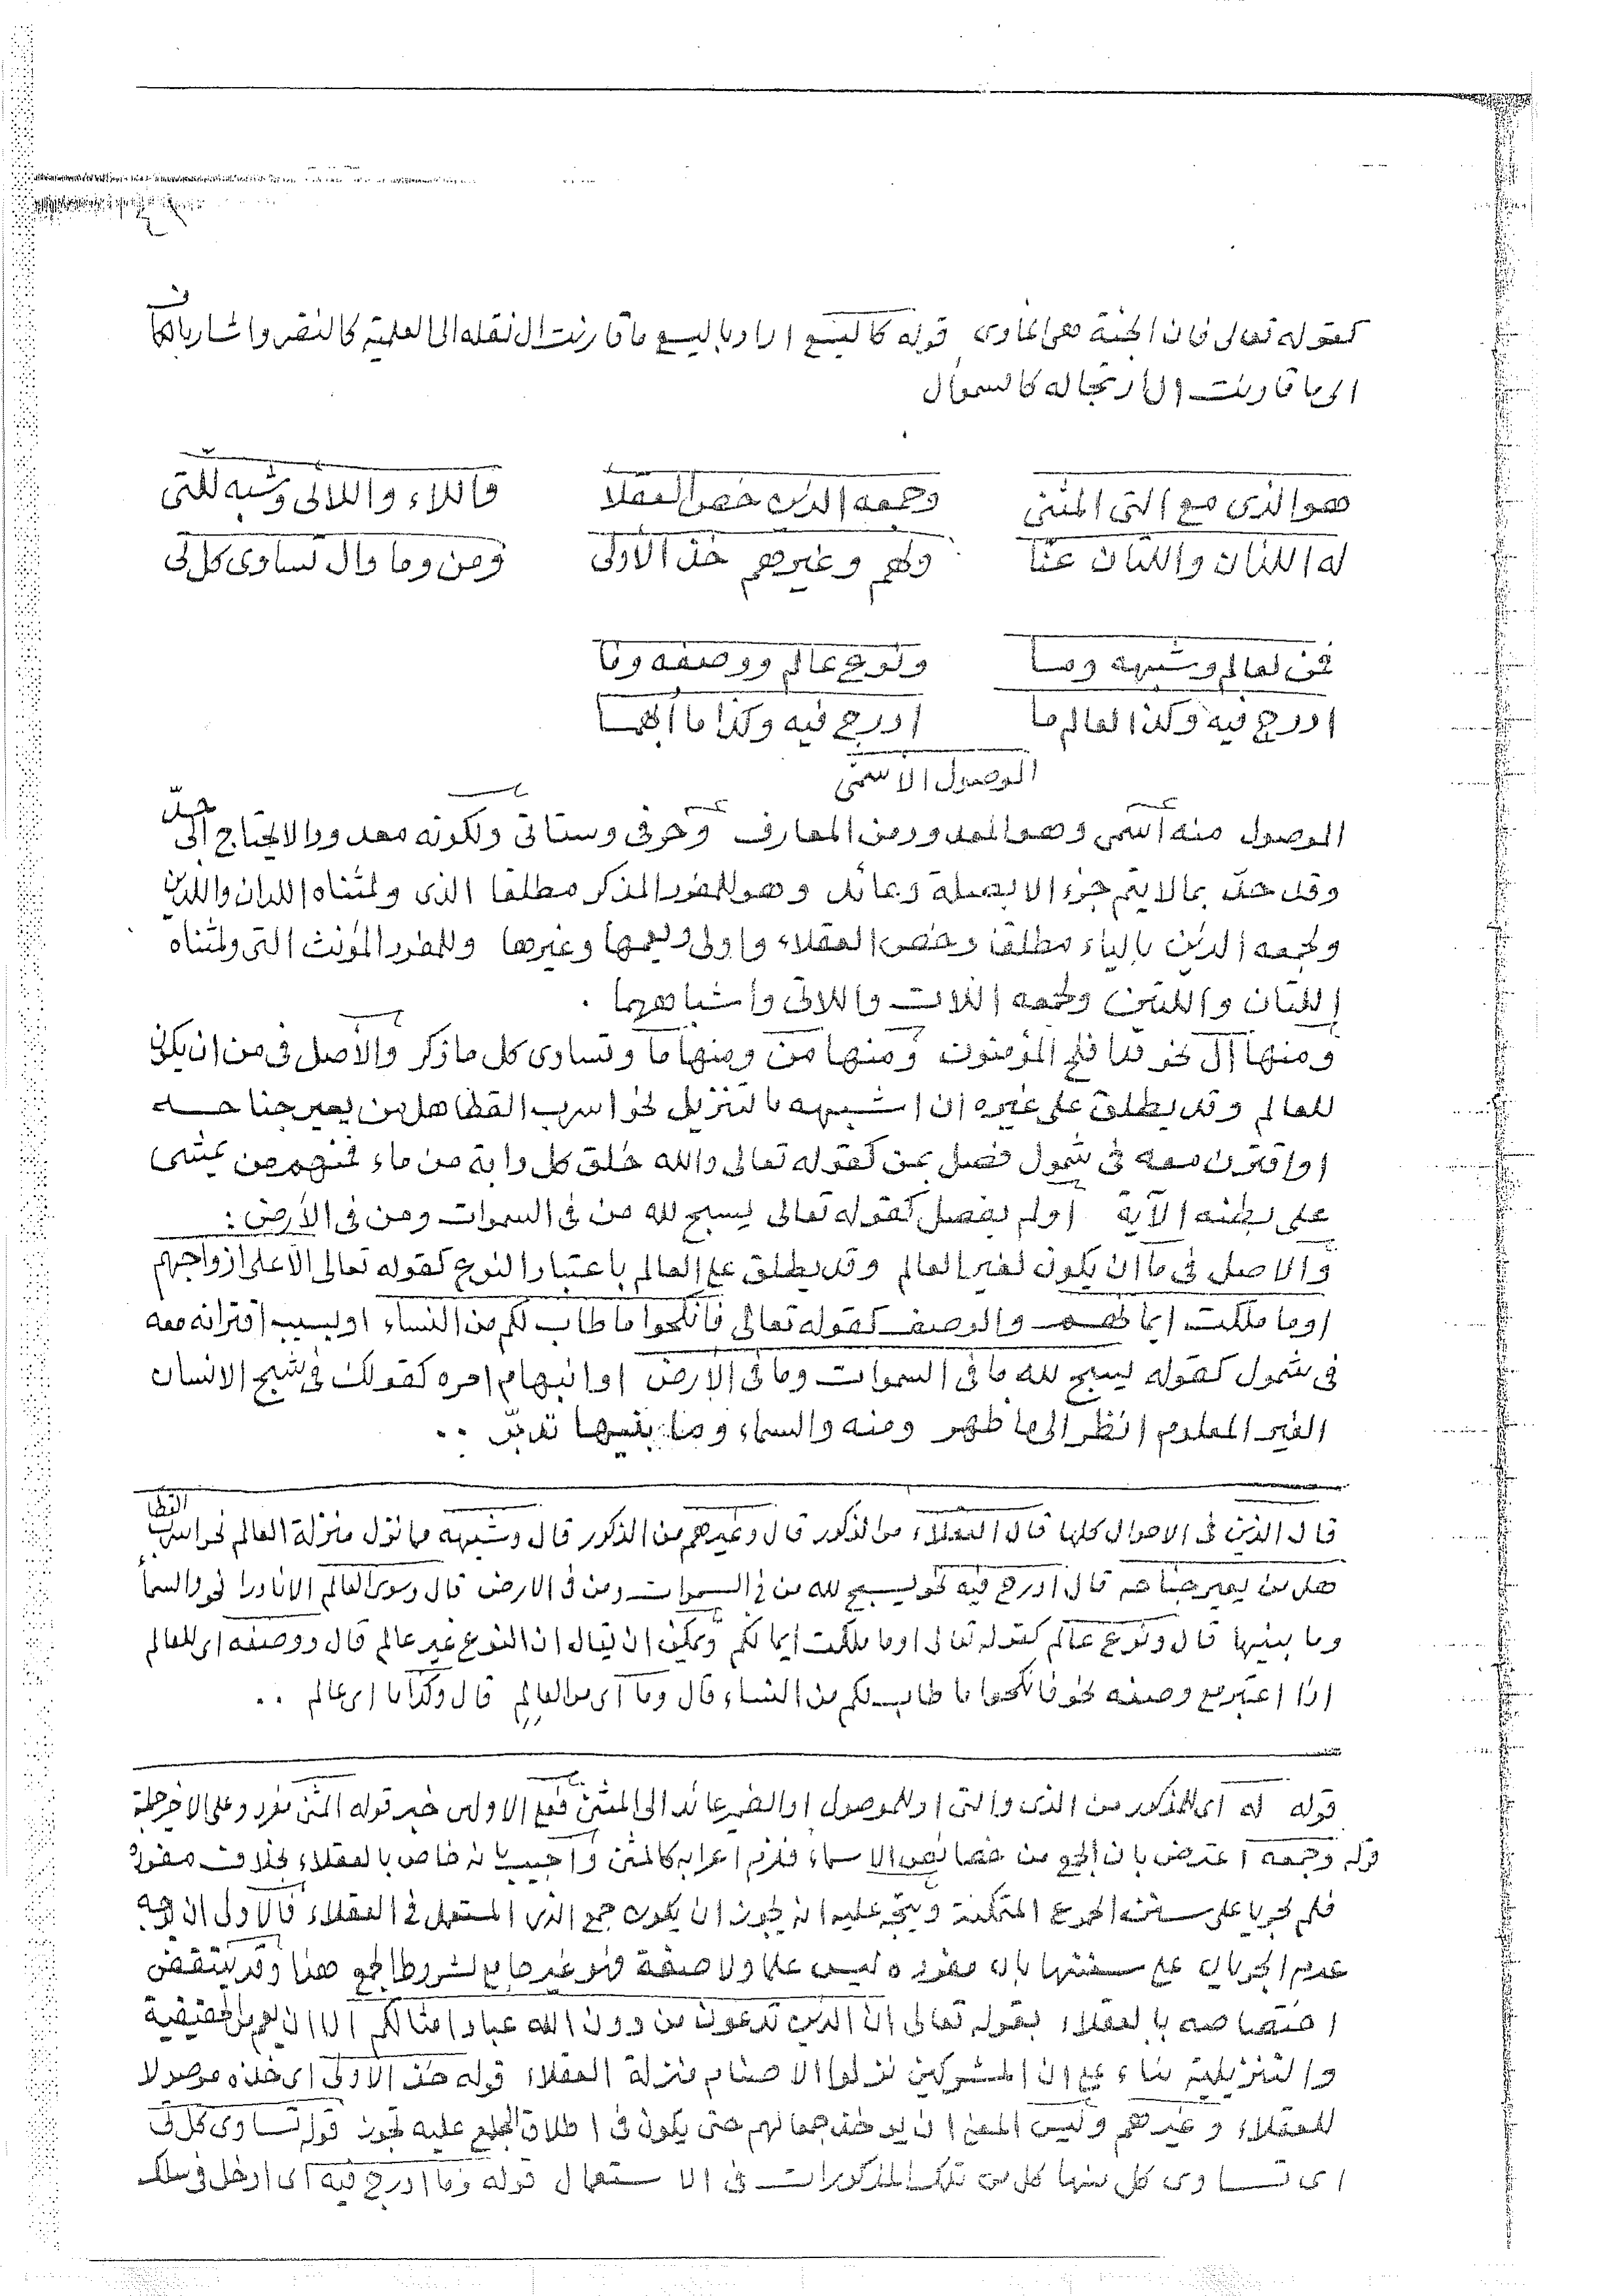 كقوله تعالى فان الجنة هى المأوى قوله كاليسع اراد باليسع ما قارنت ال نقله الى العلمية كالنضر واشار بالكاف
الى ما قارنت ال ارتجاله كالسموأل
هو الذى مع التى المثنى وجمعه الذين خص العقلا فاللاء واللاتى وشبه للتى
له اللذان واللتان عنّا ولهم وغيرهم خذ الاولى ومن وما وال تساوى كل تى
فمن لعالم وشبهه وما ونوع عالم ووصفه وما
ادرج فيه وكذا لعالم ما ادرج فيه وكذا ما انبهما
الموصول الاسمى
الموصول منه اسمى وهو المعدود من المعارف وحرفى وستأتى ولكونه معدودا لا يحتاج الى حدّ
وقد حدّ بما لا يتم جزء الا بصلة وعائد وهو للمفرد المذكر مطلقا الذى ولمثناه اللذان واللذين
ولجمعه الذين بالياء مطلقا وخص العقلاء واولى ويعمها وغيرها وللمفرد المؤنث التى ولمثناه
اللتان واللتين ولجمعه اللات واللاتى واشباههما .
ومنها ال نحو قد افلح المؤمنون ومنها من ومنها ما وتساوى كل ما ذكر والاصل فى من ان يكون
للعالم وقد يطلق على غيره ان اشبهه بالتنزيل نحو اسرب القطا هل من يعير جناحه
او اقترن معه فى شمول فصل بمن كقوله تعالى والله خلق كل دابة من ماء فمنهم من يمشى
على بطنه الآية او لم يفصل كقوله تعالى يسبح لله من فى السموات ومن فى الأرض :
والاصل فى ما ان يكون لغير العالم وقد يطلق على العالم باعتبار النوع كقوله تعالى الا على ازواجهم
او ما ملكت ايمانهم والوصف كقوله تعالى فانكحوا ما طاب لكم من النساء او بسبب اقترانه معه
فى شمول كقوله يسبح لله ما فى السموات وما فى الارض او انبهام امره كقولك فى شبح الانسان
الغير المعلوم انظر الى ما ظهر ومنه والسماء وما بنيها تدبّر ..
قال الذين فى الاحوال كلها قال العقلاء من الذكور قال وغيرهم من الذكور قال وشبهه مما نزل منزلة العالم نحو اسرب القطا
هل من يعير جناحه قال ادرج فيه نحو يسبح لله من فى السموات ومن فى الارض قال وسوى العالم الا نادرا نحو والسمأ
وما بينها قال ونوع عالم كقوله تعالى او ما ملكت ايمانكم ويمكن ان يقال ان النوع غير عالم قال ووصفه اى للعالم
اذا اعتبر مع وصفه نحو فانكحوا ما طاب لكم من النساء قال وما اى من العالم قال وكذا ما اى عالم ..
قوله له اى للمذكور من الذى والتى او للموصول او الضمير عائد الى المثنى فعلى الاولين خبر قوله المثنى مفرد وعلى الاخير جملة
قوله وجمعه اعترض بان الجمع من خصائص الاسماء فلزم اعرابه كالمثنى واجيب بانه خاص بالعقلاء بخلاف مفرده
فلم يجريا على سنته الجموع المتمكنة ويتجه عليه انه يجوز ان يكون جمع الذى المستعمل فى العقلاء فالاولى ان وجه
عدم الجريان على سنتها بان مفرده ليس علما ولا صفة فهو غير جامع لشروط الجمع هذا وقد ينتقض
اختصاصه بالعقلاء بقوله تعالى ان الذين تدعون من دون الله عباد امثالكم الا ان يعم بالحقيقية
والتنزيلية بناء على ان المشركين نزلوا الاصنام منزلة العقلاء قوله خذ الاولى اى خذه موصولا
للعقلاء وغيرهم وليس المعنى ان يوخذ جمعا لهم حتى يكون فى اطلاق الجمع عليه تجوز قوله تساوى كل تى
اى تساوى كل منها كل من تلك المذكورات فى الاستعمال قوله وما ادرج فيه اى ادخل فى سلك